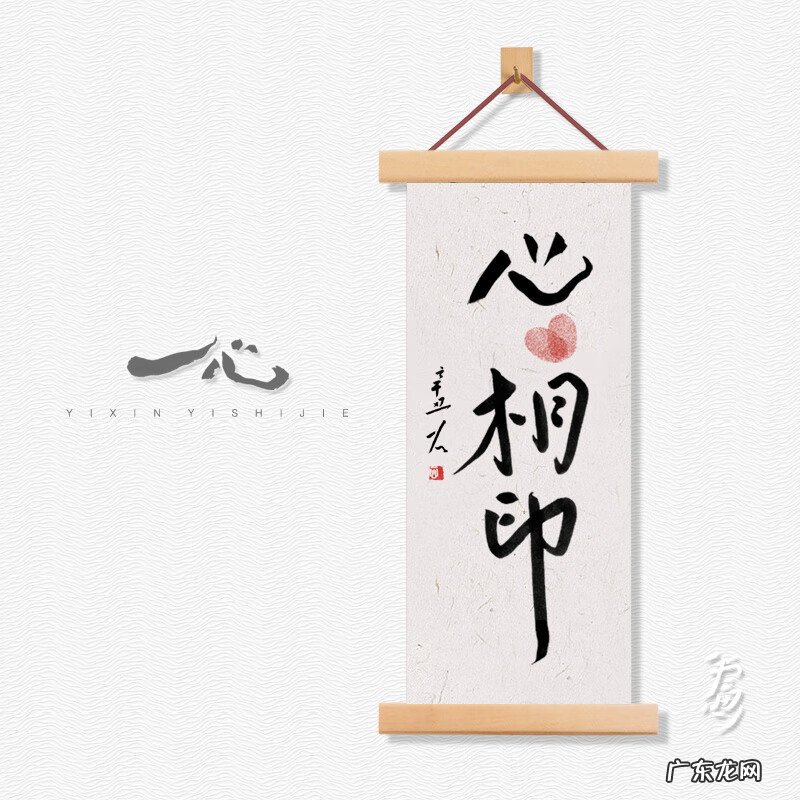 一心
YIXIN YISHIJIE
心相印
广东龙网